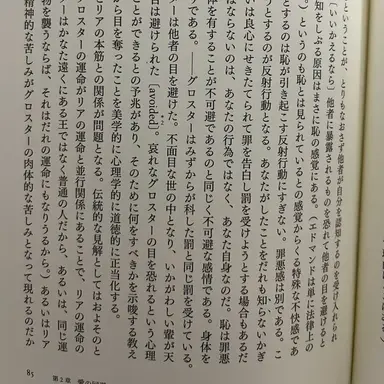 ということが、とりもなおさず他者が自分を認知するのを受け入れられ
（いいかえるなら）他者に暴露されるものを恐れて他者の目を避けると
知をしぶる原因はまさに恥の感覚にある。（エドマンドは単に法律上の
る。）というのも恥とは見られているとの感覚からくる特殊な不快感であ
とするのは恥が引き起こす反射行動にすぎない。罪悪感は別である。こ
うとするのが反射行動となる。あなたがしたことをだれも知らないかぎ
いは良心にせきたてられて罪を告白し罰を受けようとする場合もあるだ
ばならないのは、あなたの行為ではなく、あなた自身なのだ。恥は罪悪
体を有することが不可避であるのと同じく不可避な感情である。身体を
うである。――グロスターはみずからが科した罰と同じ罰を受けている。
ターは他者の目を避けた。不面目な世の中となり、いかがわしい輩が天
目は避けられた［avoided］。哀れなグロスターの目を恐れるという心理
ことができるとの予兆があり、そのために何をすべきかを示唆する教え
から目を奪ったことを美学的に心理学的に道徳的に正当化する。
リアの本筋との関係が問題となる。伝統的な見解としてはおよそのと
ロスターの運命がリアの運命と並行関係にあることで、リアの運命の
ターはかなた遠くにある王ではなく普通の人だから、あるいは、同じ運
物を襲うならば、それはだれの運命にもなりうるから。）あるいはリア
精神的な苦しみがグロスターの肉体的な苦しみとなって現れるのだか
85
第2章